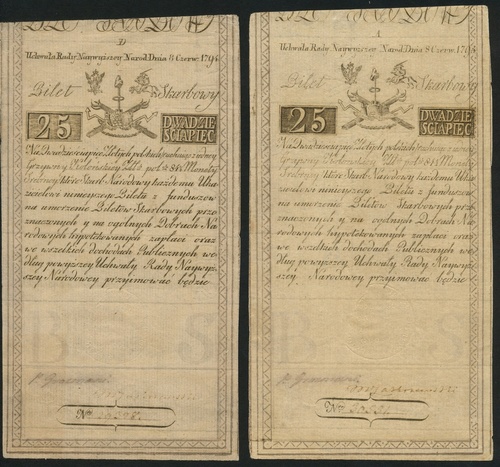 D
Uchwała Rady Naywyższey Narod: Dnia 8 Czerw. 1794
Bilet Skarbowy
25 DWADZIE
ŚCIAPIĘĆ
Na Dwadzieściapięć Złotych polskich
Grzywnę Kolońską Zł. pol. 84½ Monety
Srebrney które Skarb Narodowy każdemu Oka-
zicielowi ninieyszego Biletu z funduszów
na umorzenie Biletów Skarbowych prze-
znaczonych y na ogólnych Dobrach Na-
rodowych hypotekowanych zapłaci oraz
we wszelkich dochodach Publicznych we-
dług powyższey Uchwały Rady Naywyż-
szey Narodowey przyjmować będzie
B S
Nro
Uchwała Rady Naywyższey Narod: Dnia 8 Czerw. 1794
Bilet Skarbowy
25 DWADZIE
ŚCIAPIĘĆ
Na Dwadzieściapięć Złotych polskich
Grzywnę Kolońską Zł. pol. 84½ Monety
Srebrney które Skarb Narodowy każdemu Oka-
zicielowi ninieyszego Biletu z funduszów
na umorzenie Biletów Skarbowych prze-
znaczonych y na ogólnych Dobrach Na-
rodowych hypotekowanych zapłaci oraz
we wszelkich dochodach Publicznych we-
dług powyższey Uchwały Rady Naywyż-
szey Narodowey przyjmować będzie
B S
Nro